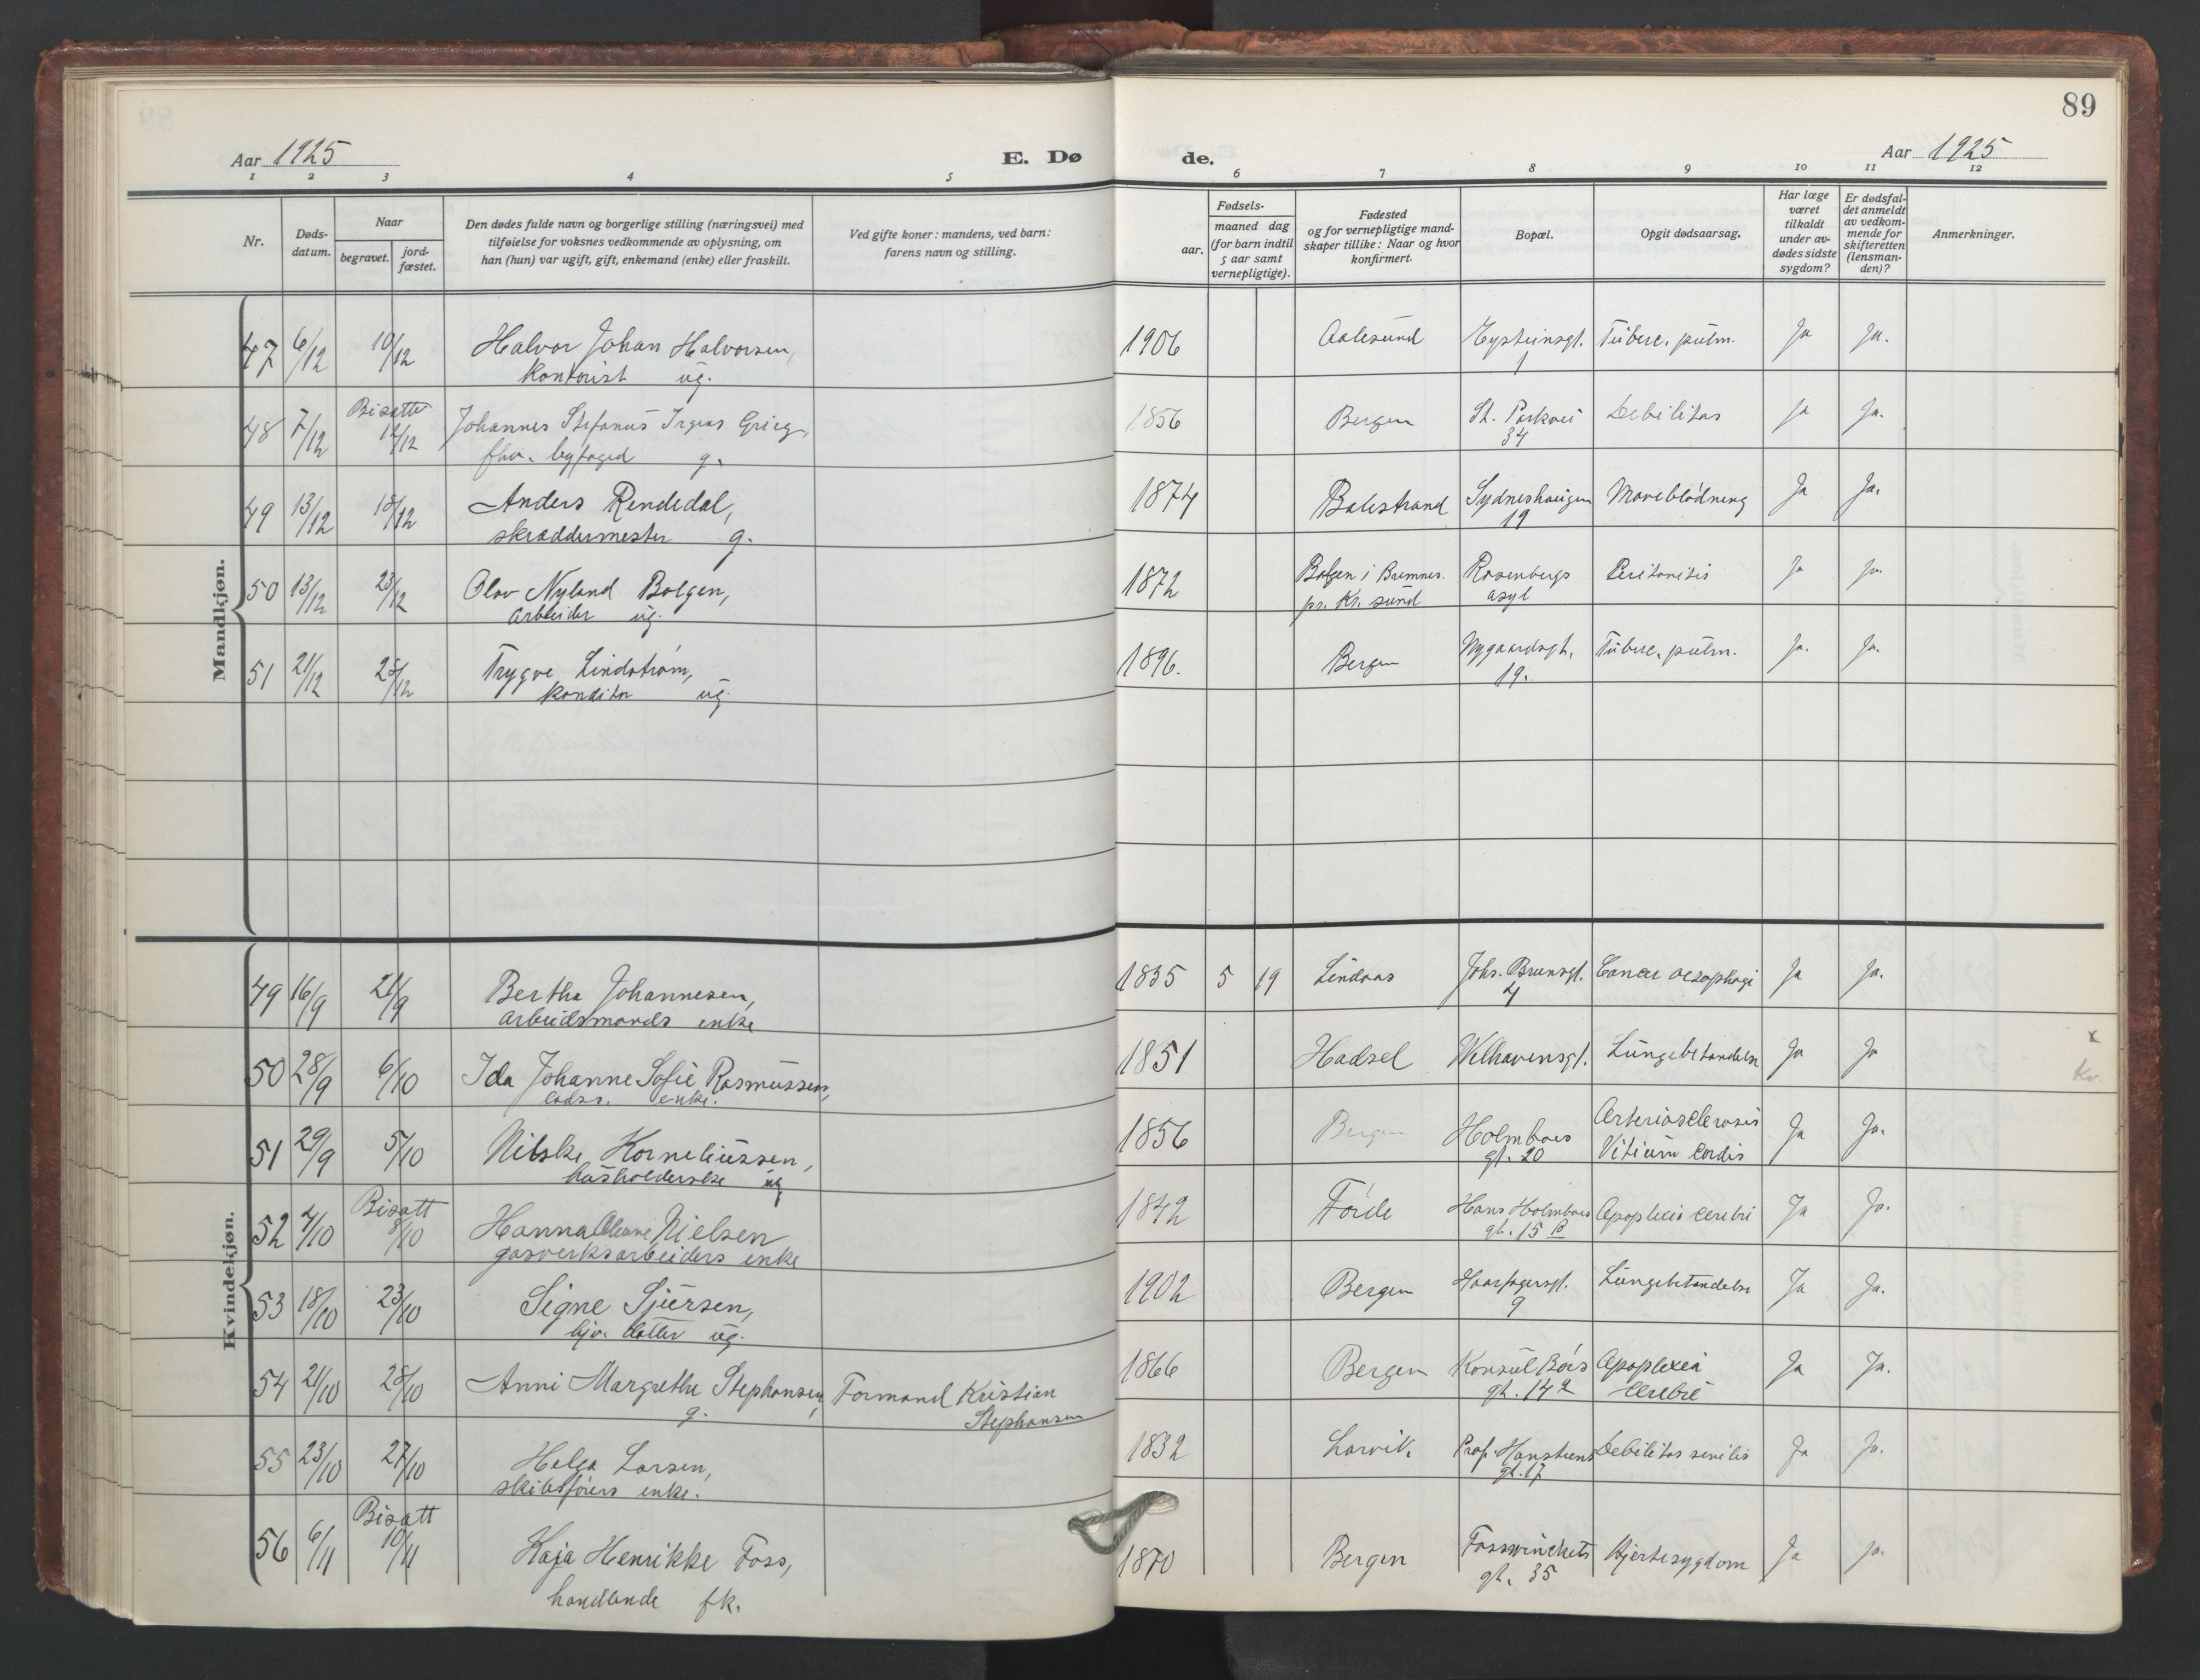 89
Aar 1925
E. Dø
de.
Aar 1925
1 2 3 4 5 6 7 8 9 10 11 12
Nr.
Døds-
datum.
Naar
begravet.
jord-
fæstet.
Den dødes fulde navn og borgerlige stilling (næringsvei) med
tilføielse for voksnes vedkommende av oplysning, om
han (hun) var ugift, gift, enkemand (enke) eller fraskilt.
Ved gifte koner: mandens, ved barn:
farens navn og stilling.
Fødsels-
aar.
maaned dag
(for barn indtil
5 aar samt
vernepligtige).
Fødested
og for vernepligtige mand-
skaper tillike: Naar og hvor
konfirmert.
Bopæl.
Opgit dødsaarsag.
Har læge
været
tilkaldt
under av-
dødes sidste
sygdom?
Er dødsfal-
det anmeldt
av vedkom-
mende for
skifteretten
(lensman-
den)?
Anmerkninger.
Mandkjøn.
47 6/12 10/12 Halvor Johan Halvorsen, 1906 Aalesund Eysteinsgt. Tuberc. pulm. Ja Ja.
kontorist ug. 1
Bisatt
48 7/12 12/12 Johannes Stefanus Grieg, 1856 Bergen St. Parkvei Debilitas Ja Ja.
fhv. byfoged g. 34
49 13/12 18/12 Anders Rendedal, 1874 Balestrand Sydneshaugen Maveblødning Ja Ja.
skræddermester g. 19
50 13/12 23/12 Olav Nyland Bolgen, 1872 Bolgen i Bremnes. Rosenbergs Peritonitis Ja Ja.
arbeider ug. pr. Kr. sund asyl
51 21/12 28/12 Trygve Lindstrøm, 1896. Bergen Nygaardsgt. Tuberc. pulm. Ja. Ja.
konditor ug. 19.
Kvindekjøn.
49 16/9 21/9 Bertha Johannesen, 1835 5 19 Lindaas Johs. Brunsgt. Cancer oesophagi Ja Ja.
arbeidsmands enke 4
50 28/9 6/10 Ida Johanne Sofie Rasmussen, 1851 Hadsel Welhavensgt. Lungebetændelse Ja Ja x
enke. Kv.
51 29/9 5/10 Nilske Korneliussen, 1856 Bergen Holmboes Arteriosclerosis Ja Ja.
husholderske ug gt. 20 Vitium cordis
Bisatt
52 4/10 8/10 Hanna Oleane Nielsen 1842 Førde Hans Holmboes Apoplexia cerebri Ja Ja.
gasverksarbeiders enke gt. 15 B
53 18/10 23/10 Signe Sjursen, 1902 Bergen Haarfagersgt. Lungebetændelse Ja Ja.
hjv. datter ug. 9
54 21/10 28/10 Anni Margrethe Stephansen, Formand Kristian 1866 Bergen Konsul Børs Apoplexia Ja Ja.
g. Stephansen gt. 14 a cerebri
55 23/10 27/10 Helga Larsen, 1832 Larvik. Prof. Hansteens Debilitas senilis Ja Ja.
skibsførers enke. gt. 17
Bisatt
56 6/11 10/11 Kaja Henrikke Foss, 1870 Bergen Fosswinckels Hjertesygdom Ja Ja.
handlende fk. gt. 35